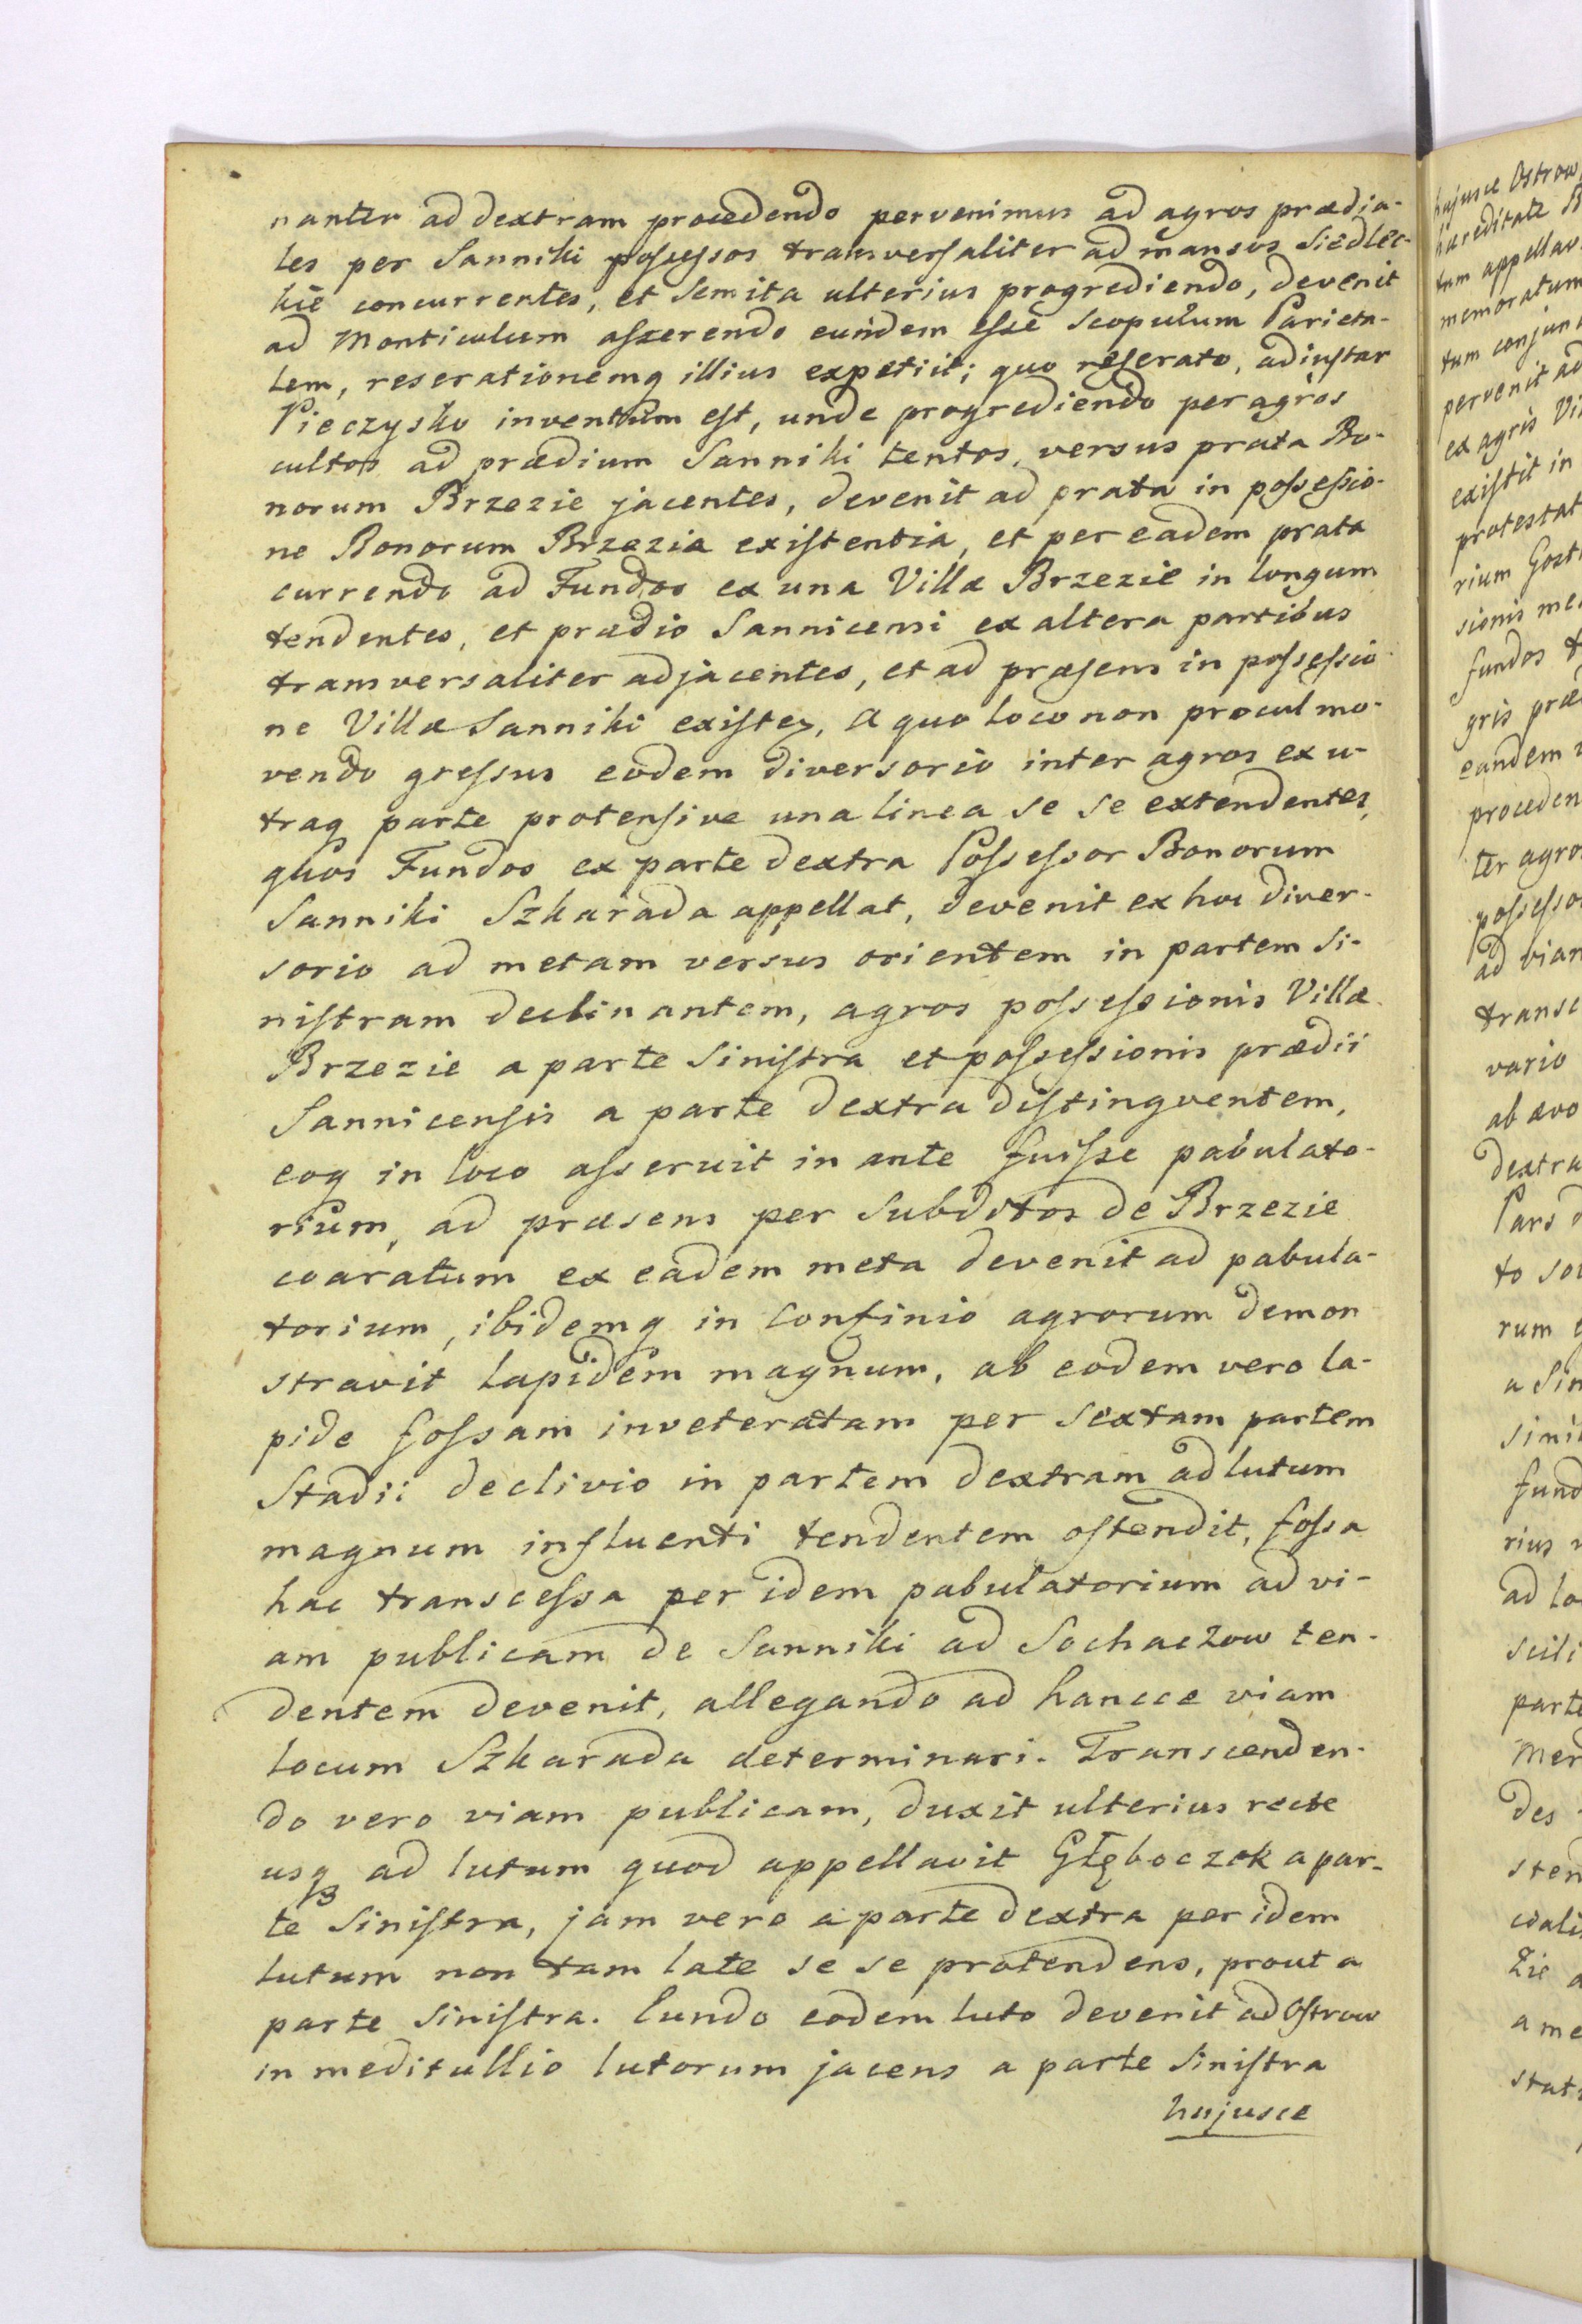 nanter ad dextram procedendo pervenimus ad agros prædia-
les per Sanniki possessos transversaliter ad mansos Siedlec-
kie concurrentes, et Semita ulterius progrediendo, devenit
ad Monticulum asserendo eundem esse Scopulum Parieta-
lem, reserationemq illius expetiit; quo reserato, adinstar
Pieczysko inventum est, unde progrediendo per agros
cultos ad prædium Sanniki tentos, versus prata Bo-
norum Brzezie jacentes, devenit ad prata in possessio-
ne Bonorum Brzezia existentia, et per eadem prata
currendo ad Fundos ex una Villæ Brzezie in longum
tendentes, et prædio Sannicensi ex altera partibus
transversaliter adjacentes, et ad præsens in possessio-
ne Villæ Sanniki existeꝫ, A quo loco non procul mo-
vendo gressus eodem diversorio inter agros ex u-
traq parte protensive una linea se se extendentes,
quos Fundos ex parte dextra Possessor Bonorum
Sanniki Szkarada appellat, devenit ex hoc diver-
sorio ad metam versus orientem in partem si-
nistram declinantem, agros possessionis Villæ
Brzezie a parte Sinistra et possessionis prædii
Sannicensis a parte dextra distingventem,
eoq in loco asseruit in ante fuisse pabulato-
rium, ad præsens per Subditos de Brzezie
coaratum ex eadem meta devenit ad pabula-
torium, ibidemq in Confinio agrorum demon
stravit lapidem magnum, ab eodem vero la-
pide fossam inveteratam per sextam partem
Stadii declivio in partem dextram ad lutum
magnum influenti tendentem ostendit, fossa
hac transcessa per idem pabulatorium ad vi-
am publicam de Sanniki ad Sochaczow ten-
dentem devenit, allegando ad hancce viam
locum Szkarada determinari. Transcenden-
do vero viam publicam, duxit ulterius recte
usq ad lutum quod appellavit Głęboczek a par-
te Sinistra, jam vero a parte dextra per idem
lutum non tam late se se protendens, prout a
parte Sinistra. Eundo eodem luto devenit ad Ostrow
in meditullio lutorum jacens a parte Sinistra
hujusce
hujusce Ostrow
hæreditate B
tum appellav
memoratum
tum conjun
pervenit ad
ex agris Vi
existit in
protestat
rium Gost
sionis me
fundos t
gris præ
eandem
proceden
ter agro
possesso
ad vian
transc
vario
ab ævo
dextra
Pars d
to so
rum
a Sin
sini
fund
rius
ad lo
scili
part
Mer
des
sten
coali
zie a
a me
stat